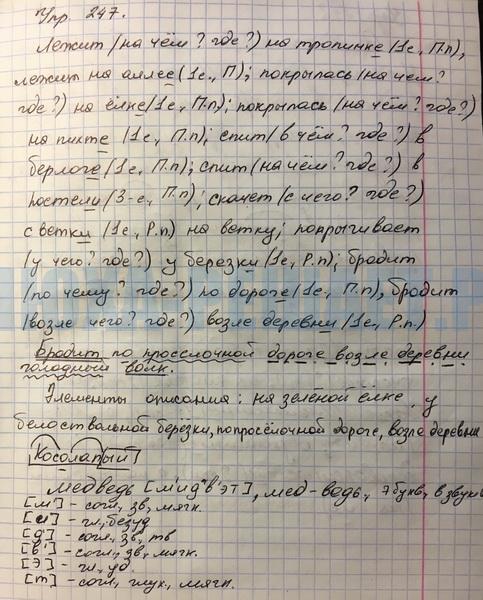 Упр. 247.
Лежит (на чём? где?) на тропинке (1е, П.п),
лежит на аллее (1е., П); покрылась (на чём?
где?) на ёлке (1е., П.п); покрылась (на чём? где?)
на пихте (1е, П.п); спит (в чём? где?) в
берлоге (1е., П.п); спит (на чём? где?) в
постели (3-е, П.п); скачет (с чего? где?)
с ветки (1е, Р.п) на ветку; попрыгивает
(у чего? где?) у березки (1е, Р.п); бродит
(по чему? где?) по дороге (1е, П.п), бродит
(возле чего? где?) возле деревни (1е, Р.п.)
Бродит по просёлочной дороге возле деревни
голодный волк.
Элементы описания: на зелёной ёлке, у
белоствольной берёзки, по просёлочной дороге, возле деревни
Косолапый
медведь [м'ид'в'эт], мед-ведь, 7 букв, 6 звуков
[м'] - согл, зв, мягк.
[и] - гл, безуд
[д'] - согл, зв, тв
[в'] - согл, зв, мягк.
[э] - гл, уд.
[т] - согл, глух, мягк.